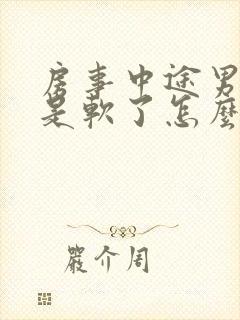 房事中途男
是軟了怎麼
嚴介周